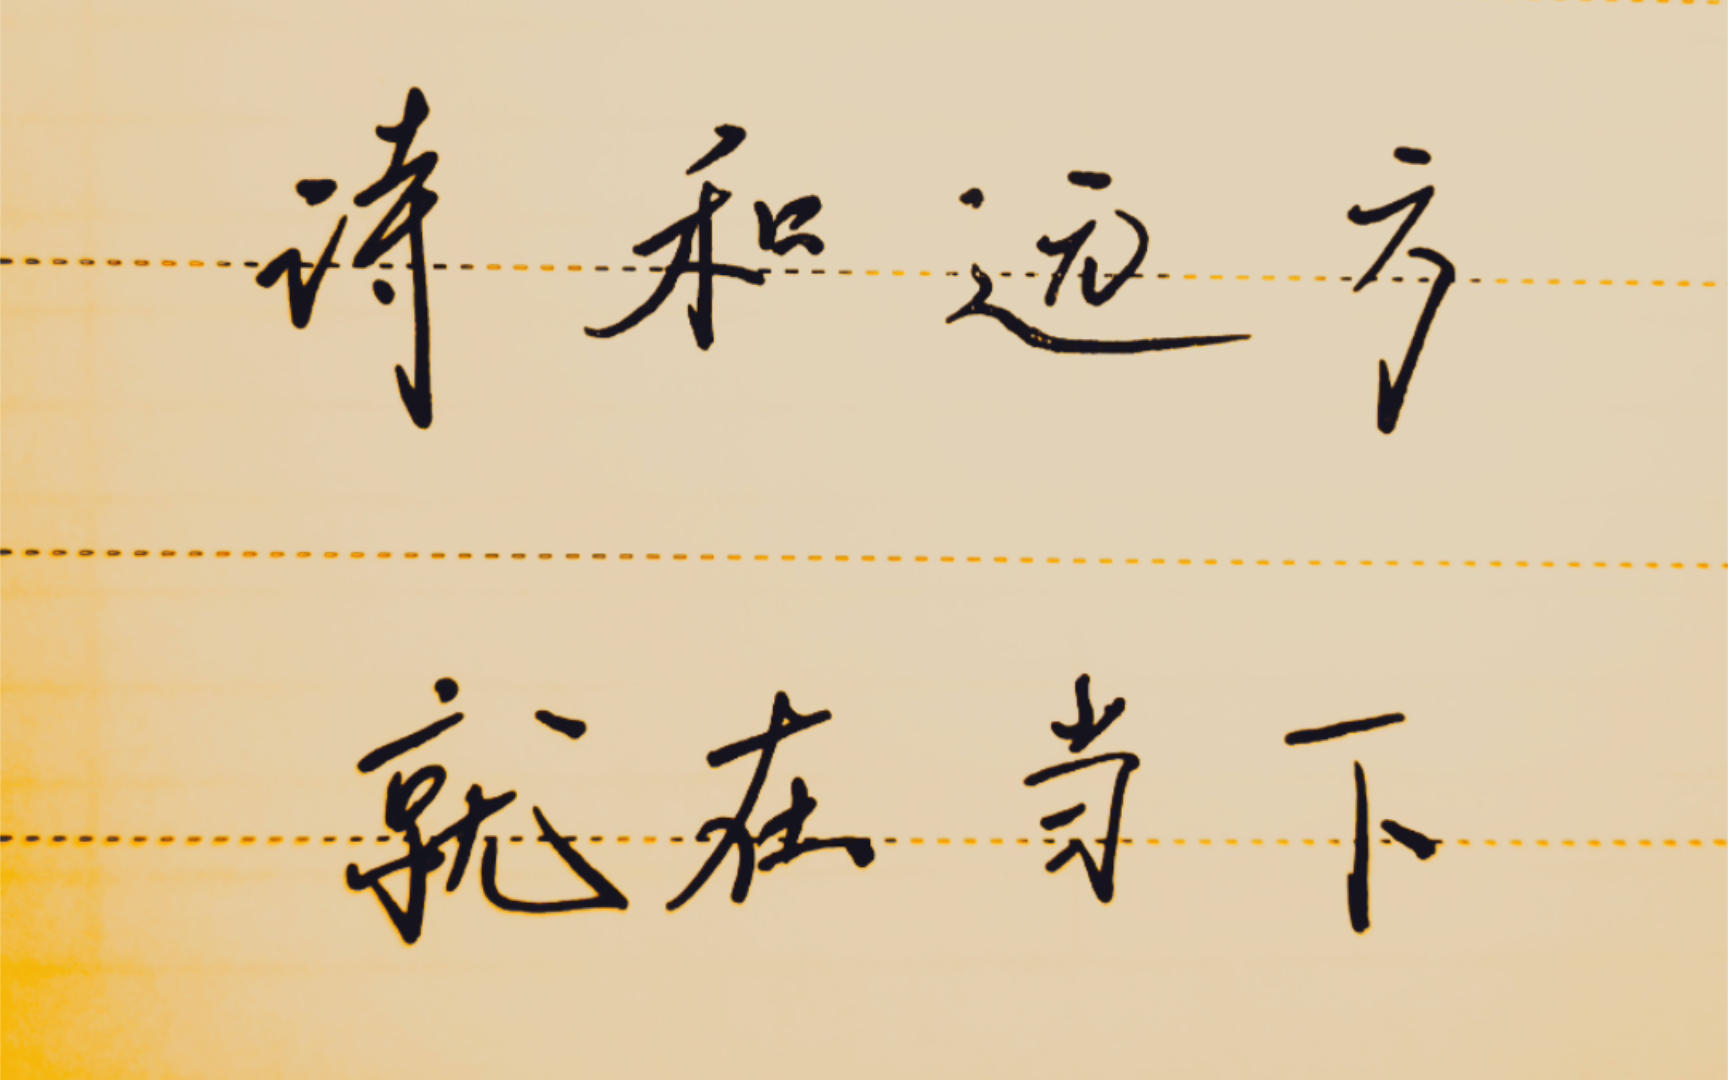 诗和远方
就在当下